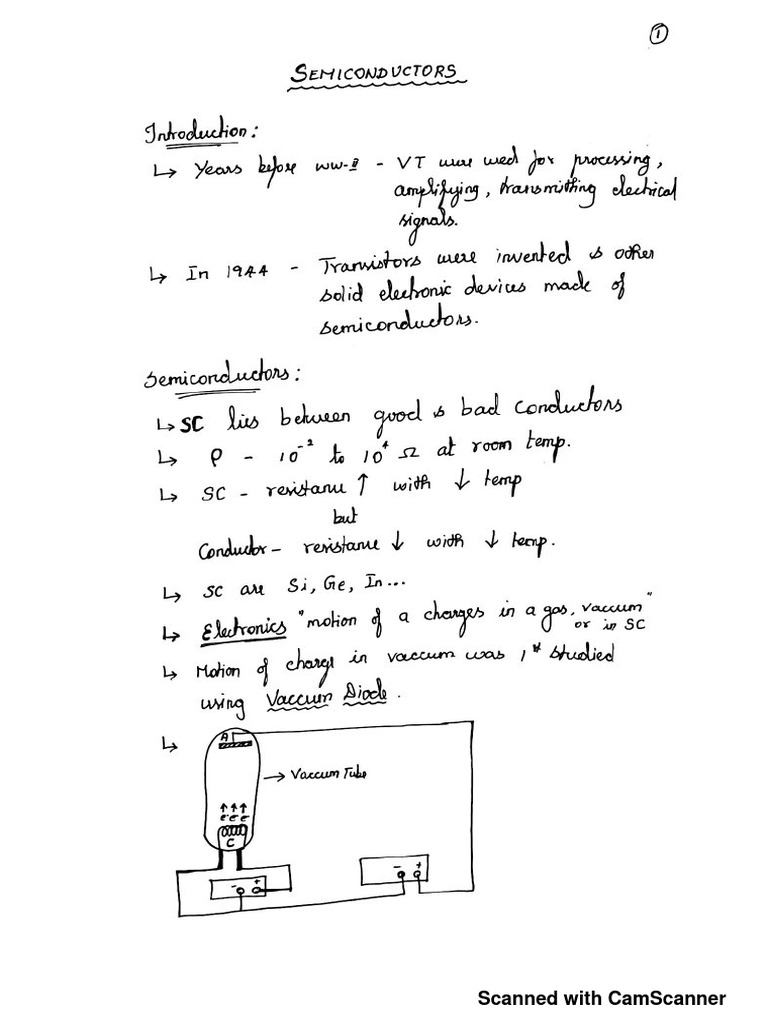 1
SEMICONDUCTORS
Introduction:
↳ Years before WW-II - VT were used for processing,
amplifying, transmitting electrical
signals.
↳ In 1944 - Transistors were invented & other
solid electronic devices made of
semiconductors.
Semiconductors:
↳ SC lies between good & bad conductors
↳ ρ - 10⁻² to 10⁴ Ω at room temp.
↳ SC - resistance ↑ with ↓ temp
but
Conductor - resistance ↓ with ↓ temp.
↳ SC are Si, Ge, In...
↳ Electronics "motion of a charges in a gas, vaccum"
or in SC
↳ Motion of charge in vaccum was 1st studied
using Vaccum Diode.
↳
A
→ Vaccum Tube
↑ ↑ ↑
e e e
C
- +
- +
Scanned with CamScanner